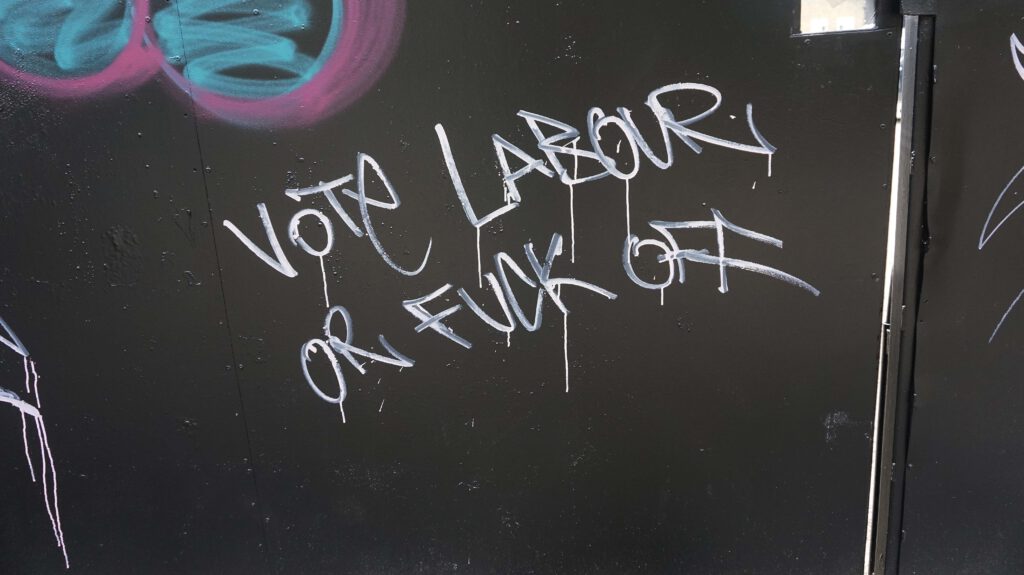 VOTE LABOUR,
OR FUCK OFF